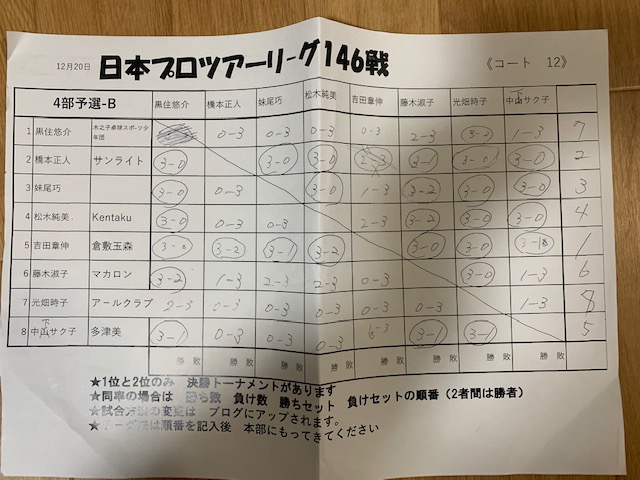 12月20日 日本プロツアーリーグ146戦 《コート 12》
4部予選-B 黒住悠介 橋本正人 妹尾巧 松木純美 吉田章伸 藤木淑子 光畑時子 中山サク子 下
1 黒住悠介 木之子卓球スポーツ少年団 0-3 0-3 0-3 0-3 2-3 1-3 7
2 橋本正人 サンライト 3-0 3-0 3-0 2-3 3-1 3-0 3-0 2
3 妹尾巧 3-0 0-3 3-0 1-3 3-2 3-0 3-0 3
4 松木純美 Kentaku 3-0 0-3 0-3 2-3 3-2 3-0 3-0 4
5 吉田章伸 倉敷玉森 3-0 3-2 3-1 3-2 3-0 3-0 1
6 藤木淑子 マカロン 3-2 1-3 2-3 2-3 0-3 3-0 1-3 6
7 光畑時子 アールクラブ 2-3 0-3 0-3 0-3 0-3 0-3 1-3 8
8 中山サク子 下 多津美 3-1 0-3 0-3 0-3 3-1 3-1 5
勝 敗 勝 敗 勝 敗 勝 敗 勝 敗 勝 敗 勝 敗 勝 敗
★1位と2位のみ 決勝トーナメントがあります
★同率の場合は 勝ち数 負け数 勝ちセット 負けセットの順番(2者間は勝者)
★試合方式の変更は ブログにアップされます。
は順番を記入後 本部にもってきてください